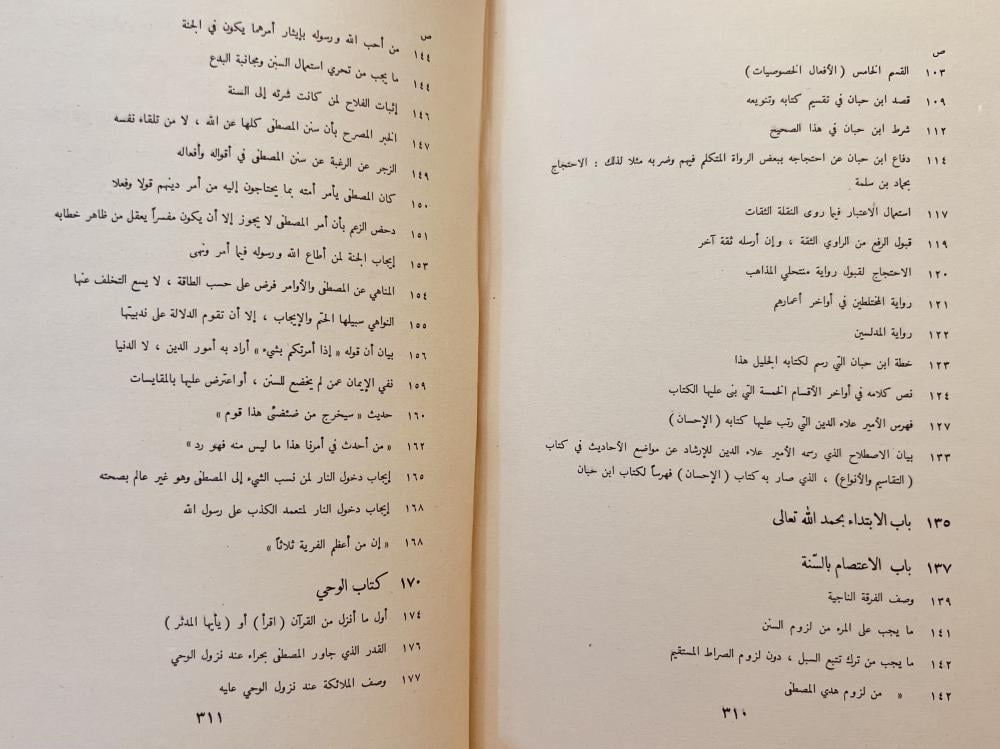 ص
١٠٣ القسم الخامس ( الأفعال الخصوصيات )
١٠٩ قصد ابن حبان في تقسيم كتابه وتنويعه
١١٢ شرط ابن حبان في هذا الصحيح
١١٤ دفاع ابن حبان عن احتجاجه ببعض الرواة المتكلم فيهم وضربه مثلا لذلك : الاحتجاج
بحماد بن سلمة
١١٧ استعمال الاعتبار فيما روى النقلة الثقات
١١٩ قبول الرفع من الراوي الثقة ، وإن أرسله ثقة آخر
١٢٠ الاحتجاج لقبول رواية منتحلي المذاهب
١٢١ رواية المختلطين في أواخر أعمارهم
١٢٢ رواية المدلسين
١٢٣ خطة ابن حبان التي رسم لكتابه الجليل هذا
١٢٤ نص كلامه في أواخر الأقسام الخمسة التي بنى عليها الكتاب
١٢٧ فهرس الأمير علاء الدين التي رتب عليها كتابه ( الإحسان )
١٣٣ بيان الاصطلاح الذي رسمه الأمير علاء الدين للإرشاد عن مواضع الأحاديث في كتاب
( التقاسيم والأنواع ) ، الذي صار به كتاب ( الإحسان ) فهرساً لكتاب ابن حبان
١٣٥ باب الابتداء بحمد الله تعالى
١٣٧ باب الاعتصام بالسّنة
١٣٩ وصف الفرقة الناجية
١٤١ ما يجب على المرء من لزوم السنن
١٤٢ ما يجب من ترك تتبع السبل ، دون لزوم الصراط المستقيم
١٤٢ « من لزوم هدي المصطفى
٣١٠
ص
١٤٤ من أحب الله ورسوله بإيثار أمرهما يكون في الجنة
١٤٤ ما يجب من تحري استعمال السنن ومجانبة البدع
١٤٦ إثبات الفلاح لمن كانت شرته إلى السنة
١٤٧ الخبر المصرح بأن سنن المصطفى كلها عن الله ، لا من تلقاء نفسه
١٤٩ الزجر عن الرغبة عن سنن المصطفى في أقواله وأفعاله
١٥٠ كان المصطفى يأمر أمته بما يحتاجون إليه من أمر دينهم قولا وفعلا
١٥١ دحض الزعم بأن أمر المصطفى لا يجوز إلا أن يكون مفسراً يعقل من ظاهر خطابه
١٥٣ إيجاب الجنة لمن أطاع الله ورسوله فيما أمر ونهى
١٥٤ المناهي عن المصطفى والأوامر فرض على حسب الطاقة ، لا يسع التخلف عنها
١٥٥ النواهي سبيلها الحتم والإيجاب ، إلا أن تقوم الدلالة على ندبيتها
١٥٦ بيان أن قوله « إذا أمرتكم بشيء » أراد به أمور الدين ، لا الدنيا
١٥٩ نفي الإيمان عمن لم يخضع للسنن ، أو اعترض عليها بالمقايسات
١٦٠ حديث « سيخرج من ضئضئ هذا قوم »
١٦٢ « من أحدث في أمرنا هذا ما ليس منه فهو رد »
١٦٥ إيجاب دخول النار لمن نسب الشيء إلى المصطفى وهو غير عالم بصحته
١٦٨ إيجاب دخول النار لمتعمد الكذب على رسول الله
١٦٨ « إن من أعظم الفرية ثلاثاً »
١٧٠ كتاب الوحي
١٧٤ أول ما أنزل من القرآن ( اقرأ ) أو ( يأيها المدثر )
١٧٦ القدر الذي جاور المصطفى بحراء عند نزول الوحي
١٧٧ وصف الملائكة عند نزول الوحي عليه
٣١١